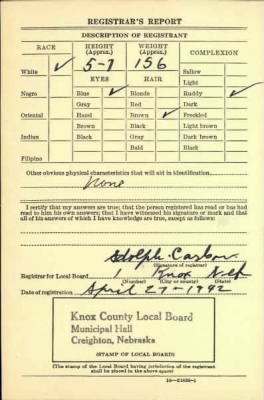 REGISTRAR'S REPORT
DESCRIPTION OF REGISTRANT
RACE HEIGHT (Approx.) WEIGHT (Approx.) COMPLEXION
White ✓ 5-7 156 Sallow
EYES HAIR Light
Negro Blue ✓ Blonde Ruddy ✓
Gray Red Dark
Oriental Hazel Brown ✓ Freckled
Brown Black Light brown
Indian Black Gray Dark brown
Bald Black
Filipino
Other obvious physical characteristics that will aid in identification
None
I certify that my answers are true; that the person registered has read or has
had read to him his own answers; that I have witnessed his signature or mark and that
all of his answers of which I have knowledge are true, except as follows:
Adolph Carlson
(Signature of registrar)
Registrar for Local Board 1 Knox Neb
(Number) (City or county) (State)
Date of registration April 27-1942
Knox County Local Board
Municipal Hall
Creighton, Nebraska
(STAMP OF LOCAL BOARD)
(The stamp of the Local Board having jurisdiction of the registrant
shall be placed in the above space)